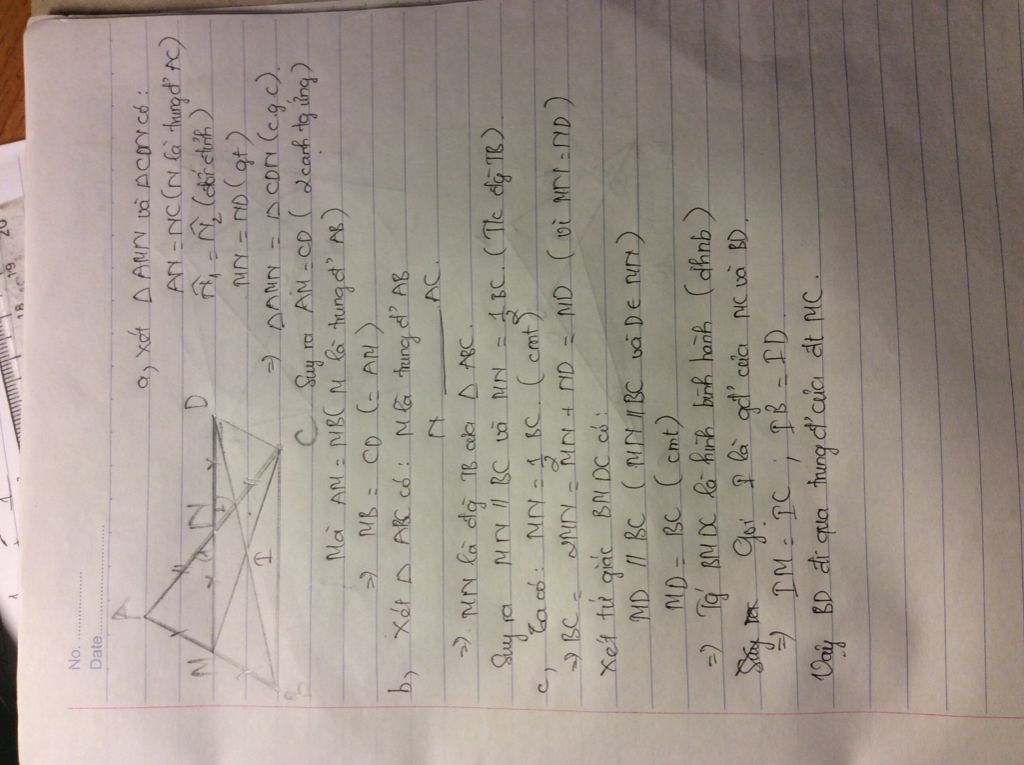 No. ............
Date ............
A
M
N
D
1
2
I
B
C
a, xét Δ AMN và ΔCDN có:
AN = NC (N là trung đ' AC)
N̂₁ = N̂₂ (đối đỉnh)
MN = ND (gt)
⇒ ΔAMN = ΔCDN (c.g.c)
Suy ra AM = CD (2 cạnh tg ứng)
Mà AM = MB (M là trung đ' AB)
⇒ MB = CD (= AM)
b, Xét Δ ABC có: M là trung đ' AB
N ——— AC.
⇒ MN là đg TB của Δ ABC.
Suy ra MN // BC và MN = 1/2 BC. (T/c đg TB).
c, Ta có: MN = 1/2 BC. (cmt)
⇒ BC = 2MN = MN + ND = MD (vì MN = ND)
Xét tứ giác BMDC có:
MD // BC (MN // BC và D ∈ MN)
MD = BC (cmt)
⇒ Tg BMDC là hình bình hành (dhnb)
Gọi I là gđ' của MC và BD.
⇒ IM = IC ; IB = ID
Vậy BD đi qua trung đ' của đt MC.
18
19
20